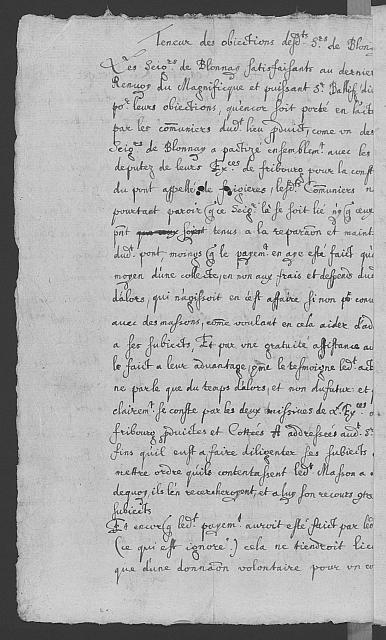 Teneur des obiections desd.ts S.rs de Blon
Les Seig.rs de Blonnay satisfaisants au dernier
Renuoy du Magnificque et puissant S.r Ballif
po.r leurs obiections, qu'encor soit porté en l'act
par les com̃uniers dud.t lieu p̃duict, come vn des
Seig.rs de Blonnay a pactizé ensemblem.t avec les
deputez de leurs Ex.ces de fribourg pour la const
du pont appellé de figieres, lesd.ts Com̃uniers n
pourtant paroir q̃ ce Seig.r là se soit lié ny q̃ ceux
p̃nt soyent tenus a la repar̃on et maint
dud.t pont, moings q̃ le payem.t en aye esté faict qu
moyen d'une collecte, en non aux frais et despens dud
d'alors, qui n'agissoit en cest affaire si non p.r conv
avec des massons, com̃e voulant en cela aider
a ses subiects, Et par vne gratuite assistance au
le faict a leur advantage, com̃e le tesmoigne led.t act
ne parle que du temps d'alors, et non du futur: et
clairem.t se conste par les deux missives de L. Ex.ces
fribourg p̃duictes et Cottées A addressées aud.t S.r
fins qu'il eust a faire diligenter ses subiects
mettre ordre qu'ils contentassent led.t Masson
dequoy, ils l'en rechercheroyent, et a luy son recours
subiects
Et encor q̃ led.t payem.t auroit esté faict par led
(ce qui est ignoré) cela ne tiendroit lieu
que d'une dona͠on volontaire pour un